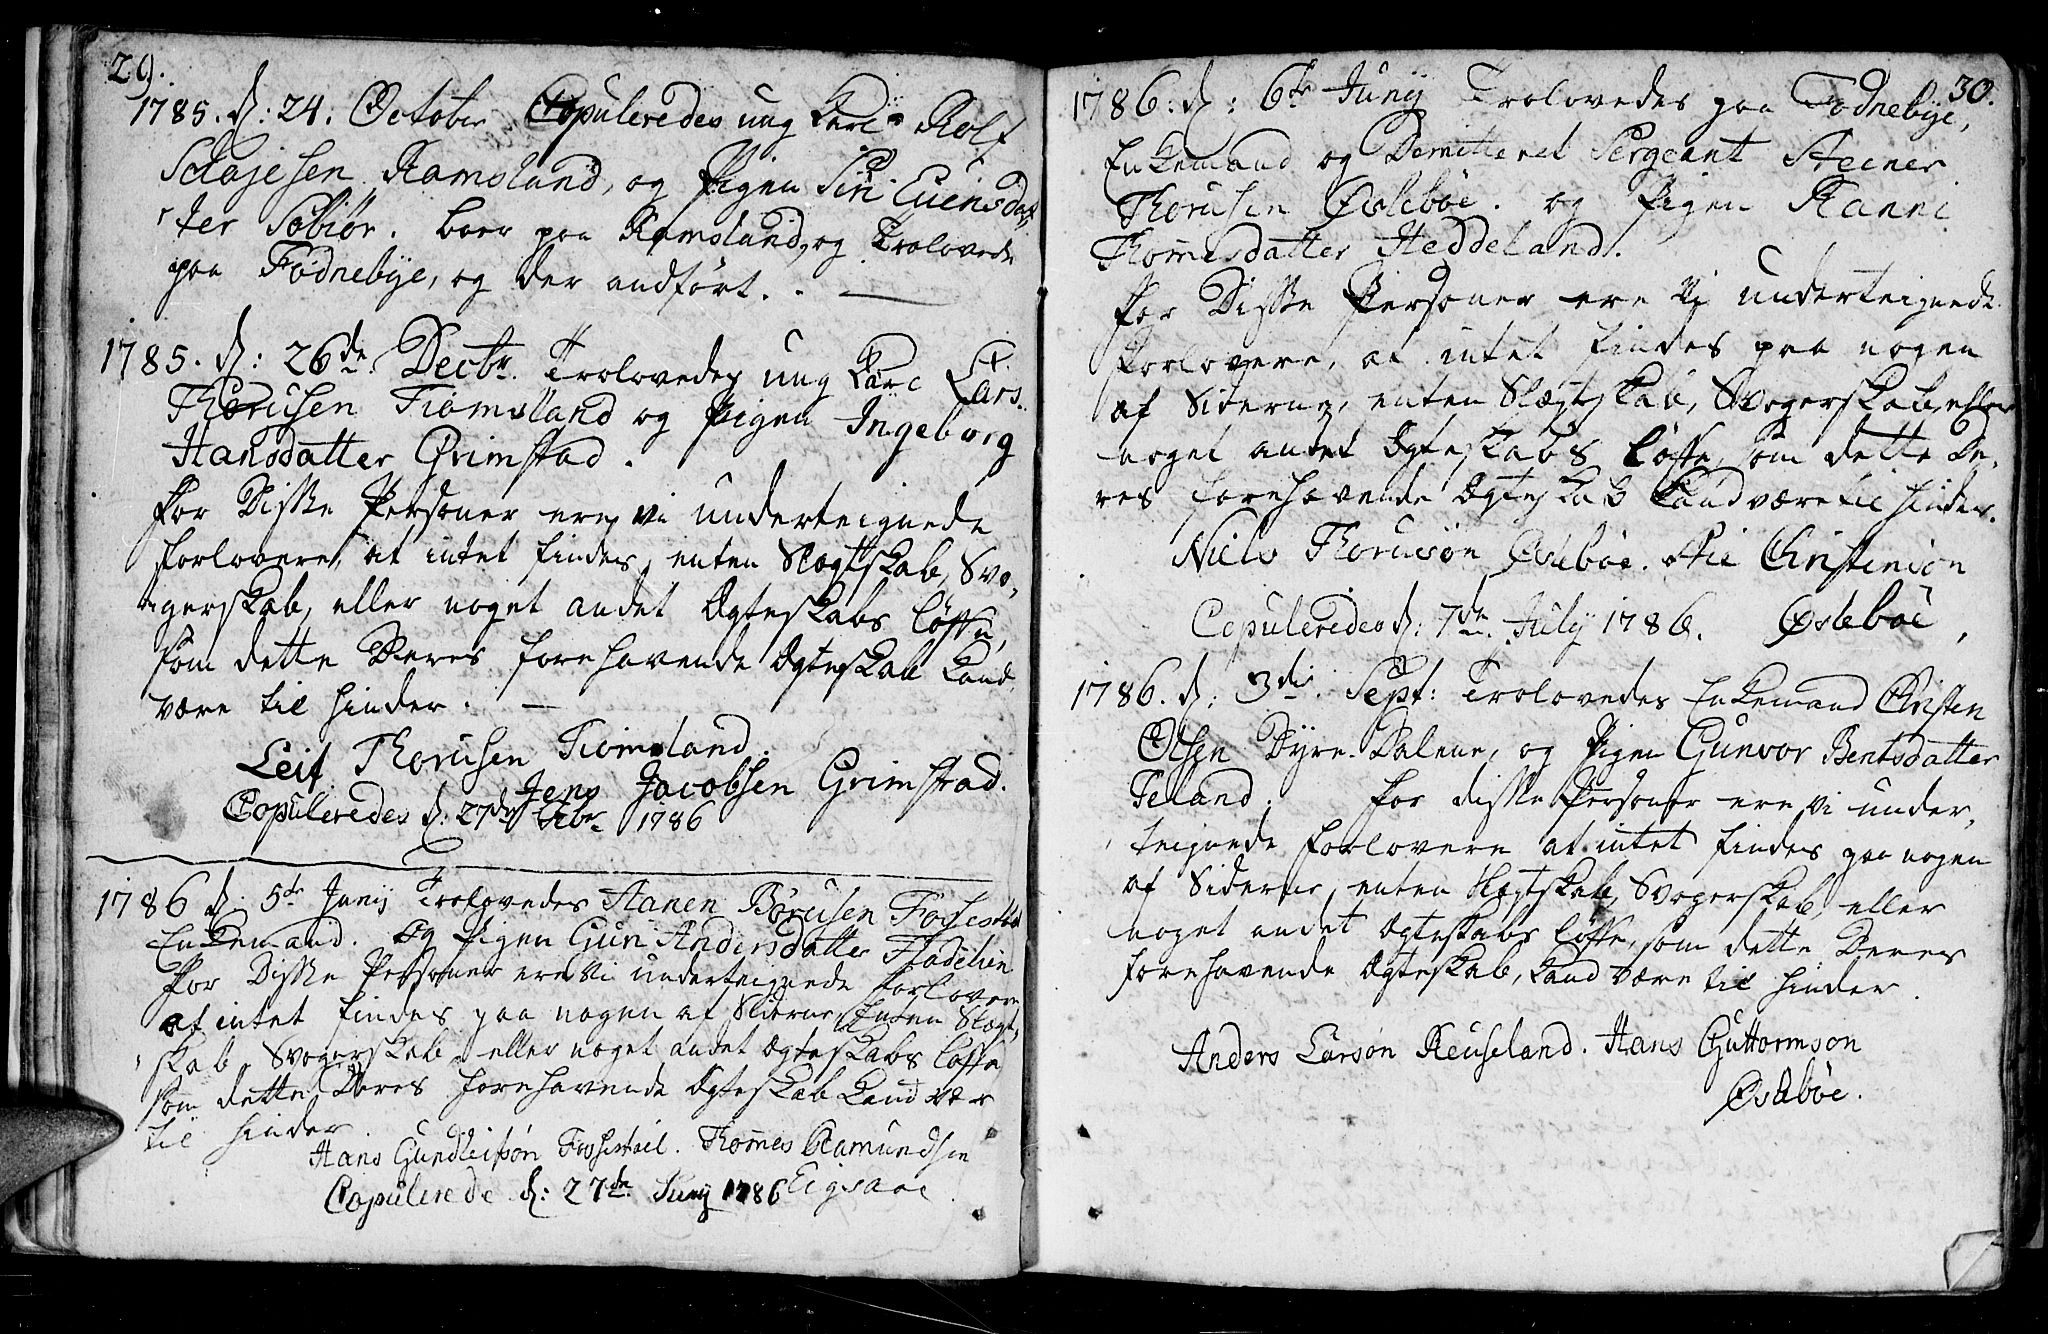 29.
1785. d: 24. October Copuleredes ung Karl Rolf
Aajesen Ramsland, og Pigen Siri Euensdat
ter Sobiör. boer paa Ramsland, og Trolovede
paa Fodnebÿe, og der andført.
1785. d: 26de Decbr. Trolovedes ung Karl Lars
Thorusen Tiomsland og Pigen Ingeborg
Hansdatter Grimstad.
For Disse Personer ere vi underteignede
Forlovere, at intet findes, enten Slægtskab, Svo,
gerskab, eller noget andet Ægteskabs Løffte,
som dette Deres forehavende Ægteskab kand
være til hinder.
Leif Thorusen Tiomsland.
Jens Jacobsen Grimstad.
Copuleredes d: 27de Febr. 1786
1786 d: 5te Junij Trolovedes Aanen Börusen
Enkemand. og Pigen Guri Andersdatter
For Disse Personer ere Vi underteignede Forlovere
at intet findes paa nogen af Siderne, Enten Slægt,
skab, Svogerskab, eller noget andet Ægteskabs Løffte
som dette Deres forehavende Ægteskab kand være
til hinder.
Hans Thomes Ramundsen
Eigsaae
Copulerede d: 27de Junij 1786
30.
1786: d: 6te Junij Trolovedes paa Fodnebÿe,
Enkemand og Demitteret Sergeant Steener
Thorusen Øslebøe. og Pigen Ranni
Thomesdatter Heddeland.
For Disse Personer ere Vj underteignede
Forlovere, at intet findes paa nogen
af Siderne, enten Slægtskab, Svogerskab, eller
noget andet Ægteskabs Løffte, som dette De,
res forehavende Ægteskab kand være til hinder.
Niels Thorusön Øslebøe. Christensön
Øslebøe,
Copuleredes d: 7de July 1786.
1786. d: 3die Sept: Trolovedes Enkemand Christen
Olsen Dyre-Dalene, og Pigen Gunvor Bentsdatter
Teland. For disse Personer ere vi under,
teignede Forlovere at intet findes paa nogen
af Siderne, enten Slægtskab, Svogerskab, eller
noget andet Ægteskabs Løffte, som dette Deres
forehavende Ægteskab, kand være til hinder.
Anders Larsön Reuseland. Hans Guttormson
Øslebøe.